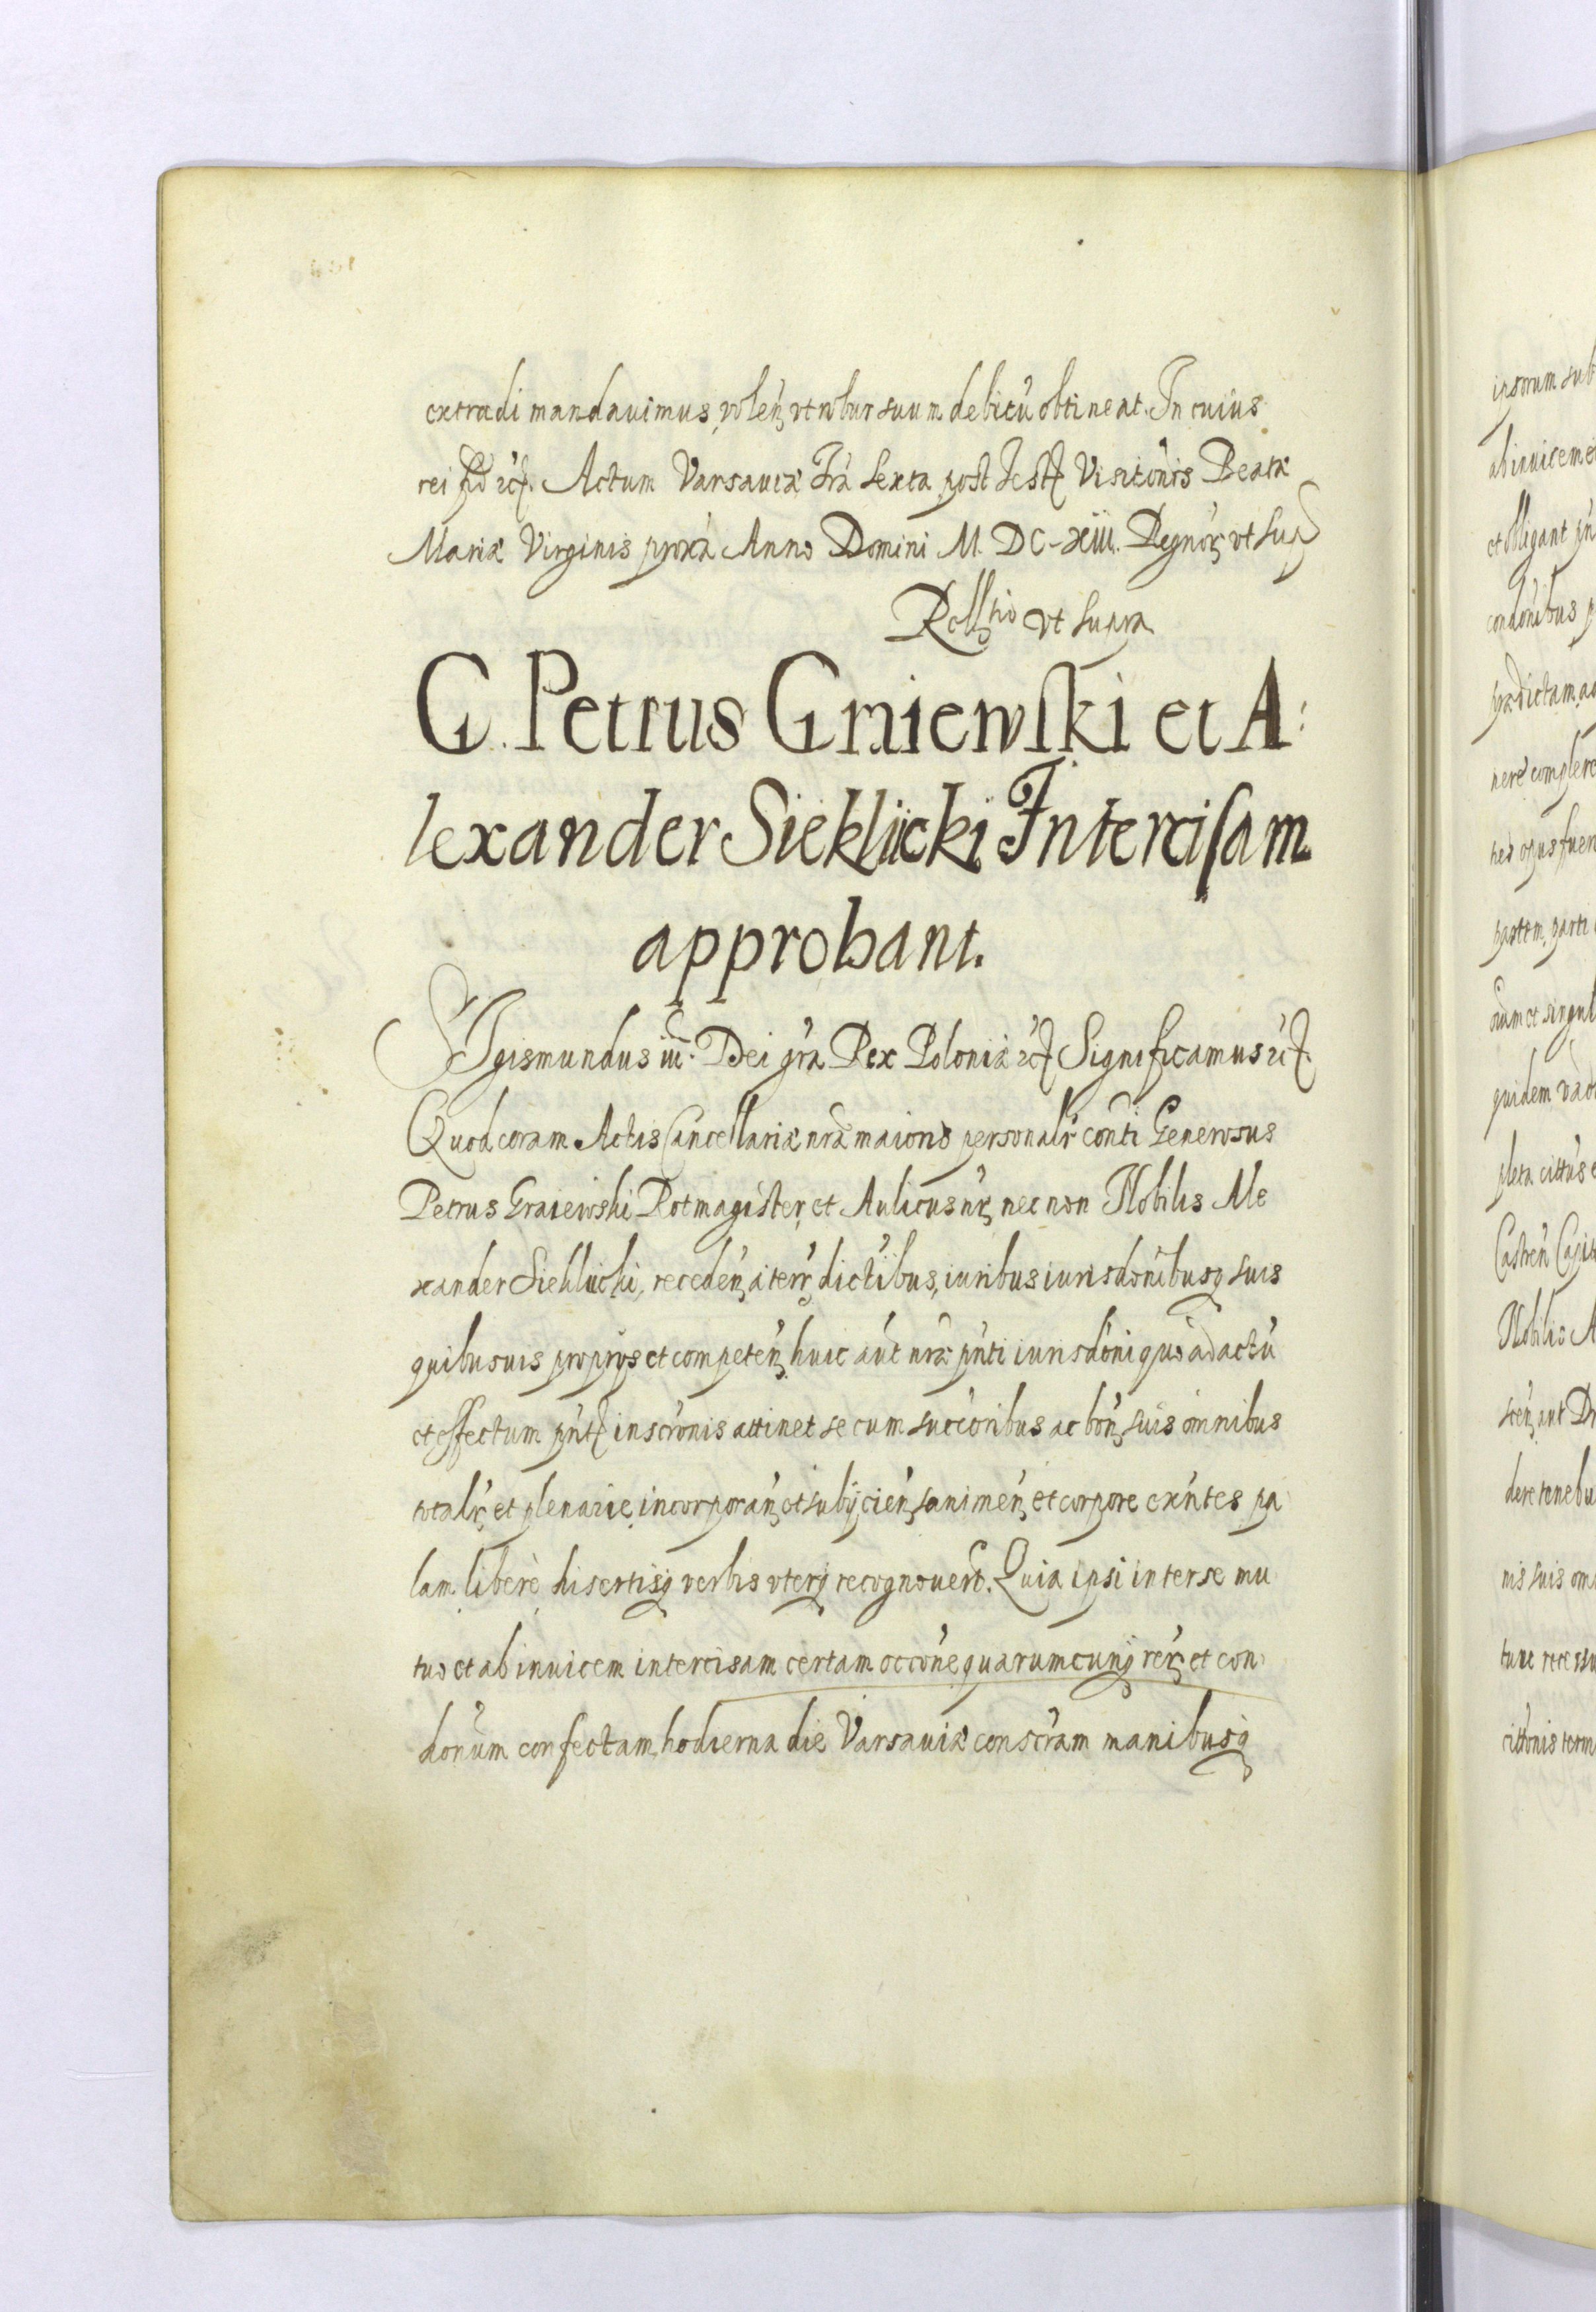 extradi mandauimus, volen. vt robur suum debitū obtineat. In cuius
rei fid. etc. Actum Varsauiæ Fr̃a Sexta post Fest. Visitõnis Beatæ
Mariæ Virginis prox̃a Anno Domini M. DC-XIII. Regnor. vt Sup
Rel̃tio vt supra
G. Petrus Graiewſki et A:
lexander Sieklücki Interciſam
approbant.
SIgismundus iii. Dei gr̃a Rex Poloniæ etc. Significamus etc.
Quod coram Actis Cancellariæ nr̃æ maioris personalr̃ con̄ti Generosus
Petrus Graiewski Rotmagister, et Aulicus nr̃, nec non Nobilis Ale
xander Sieklücki, receden. à terr. dictr̃ibus, iuribus iurisdõnibusq suis
quibusuis proprijs et competen. huic aũt nr̃æ pñti iurisdõni quo ad actū
et effectum pñt. inscr̃onis attinet se cum succ̃oribus ac bon. suis omnibus
totalr̃ et plenarie, incorporan. et subijcien. sani men. et corpore exñtes pa
lam liberè disertisq verbis vterq recognouer̃t. Quia ipsi inter se mu
tuo et ab inuicem intercisam certam occõne quarumcunq rer. et con
dõnum confectam, hodierna die Varsauiæ conscr̃am manibusq
ipsorum sub
ab inuicem et
et obligant pñ
condõnibus p
prædictam, ac
nere complere
hes opus fuer
partem, parti
oĩum et singul
quidem vad
pleta citt̃us e
Castren. Capit
Nobilis A
scen. aut Dr
dere tenebu
nis suis om
tunc recessu
citt̃onis term